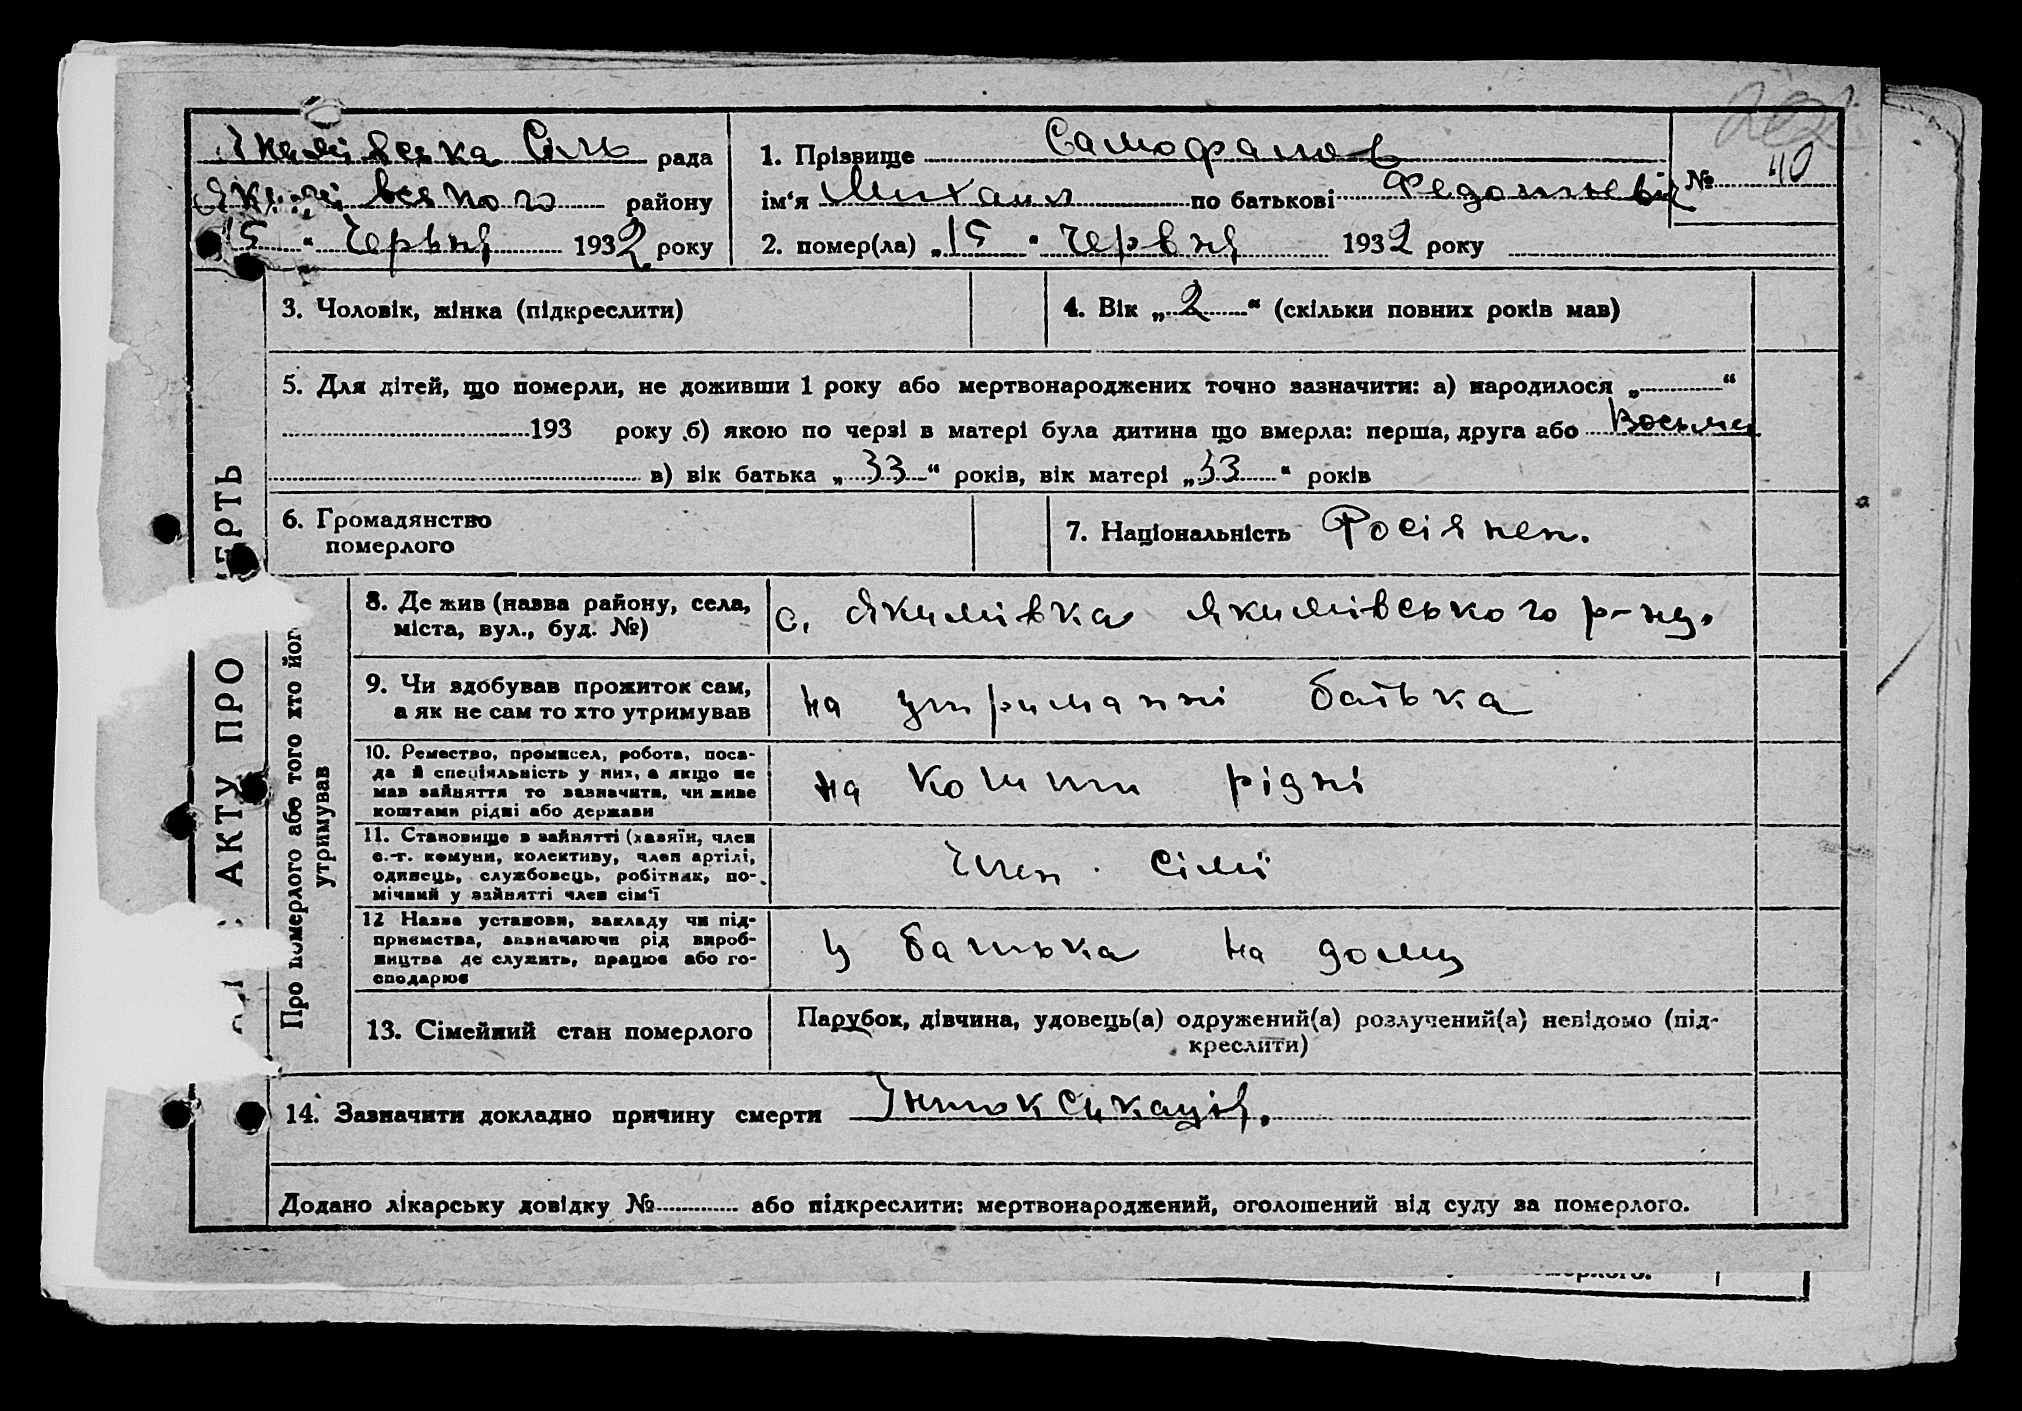 Якимівська Сіль рада
Якимівського району
15 " Червня 1932 року
1. Прізвище Самофалов
ім'я Михаил по батькові
№ 40
2. помер(ла) „15 " червня 1932 року
АКТУ ПРО ЕРТЬ
3. Чоловік, жінка (підкреслити)
4. Вік „ 2 “ (скільки повних років мав)
5. Для дітей, що померли, не доживши 1 року або мертвонароджених точно зазначити: а) народилося „ “
193 року б) якою по черзі в матері була дитина що вмерла: перша, друга або Восьма
в) вік батька „ 33 “ років, вік матері „ 33 “ років
6. Громадянство
померлого
7. Національність Росіянен.
Про померлого або того хто його
утримував
8. Де жив (назва району, села,
міста, вул., буд. №)
с. Якимівка Якимівського р-ну.
9. Чи здобував прожиток сам,
а як не сам то хто утримував
на утриманні батька
10. Ремество, промисел, робота, поса-
да й спеціяльність у них, а якщо не
мав зайняття то зазначити, чи живе
коштами рідні або держави
на кошти рідні
11. Становище в зайнятті (хазяїн, член
с.-г. комуни, колективу, член артілі,
одинець, службовець, робітник, по-
мічний у зайнятті член сім'ї
Член сімї
12 Назва установи, закладу чи під-
приємства, зазначаючи рід вироб-
ництва де служить, працює або го-
сподарює
у батька на дому
13. Сімейний стан померлого
Парубок, дівчина, удовець(а) одружений(а) розлучений(а) невідомо (під-
креслити)
14. Зазначити докладно причину смерти Інтоксикація.
Додано лікарську довідку № або підкреслити: мертвонароджений, оголошений від суду за померлого.